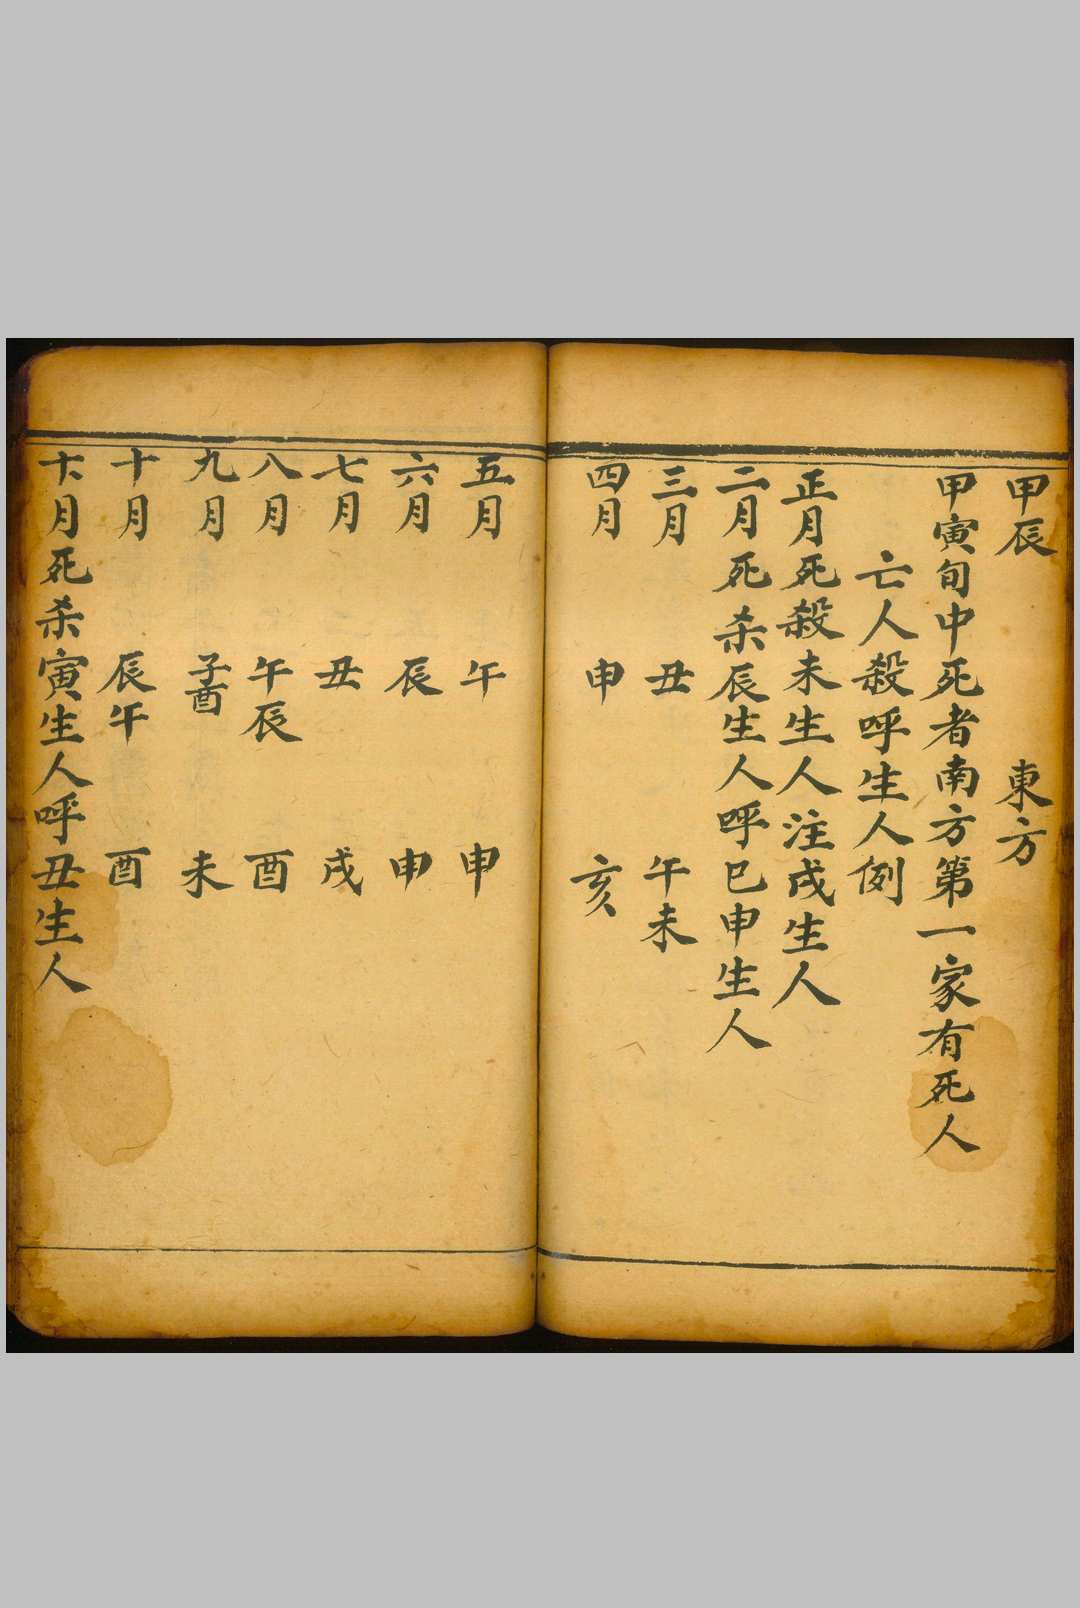 甲辰　東方
甲寅旬中死者南方第一家有死人
亡人殺呼生人例
正月死殺未生人注戌生人
二月死杀辰生人呼巳申生人
三月　丑　午未
四月　申　亥
五月　午　申
六月　辰　申
七月　丑　戌
八月　午辰　酉
九月　子酉　未
十月　辰午　酉
月死杀寅生人呼丑生人